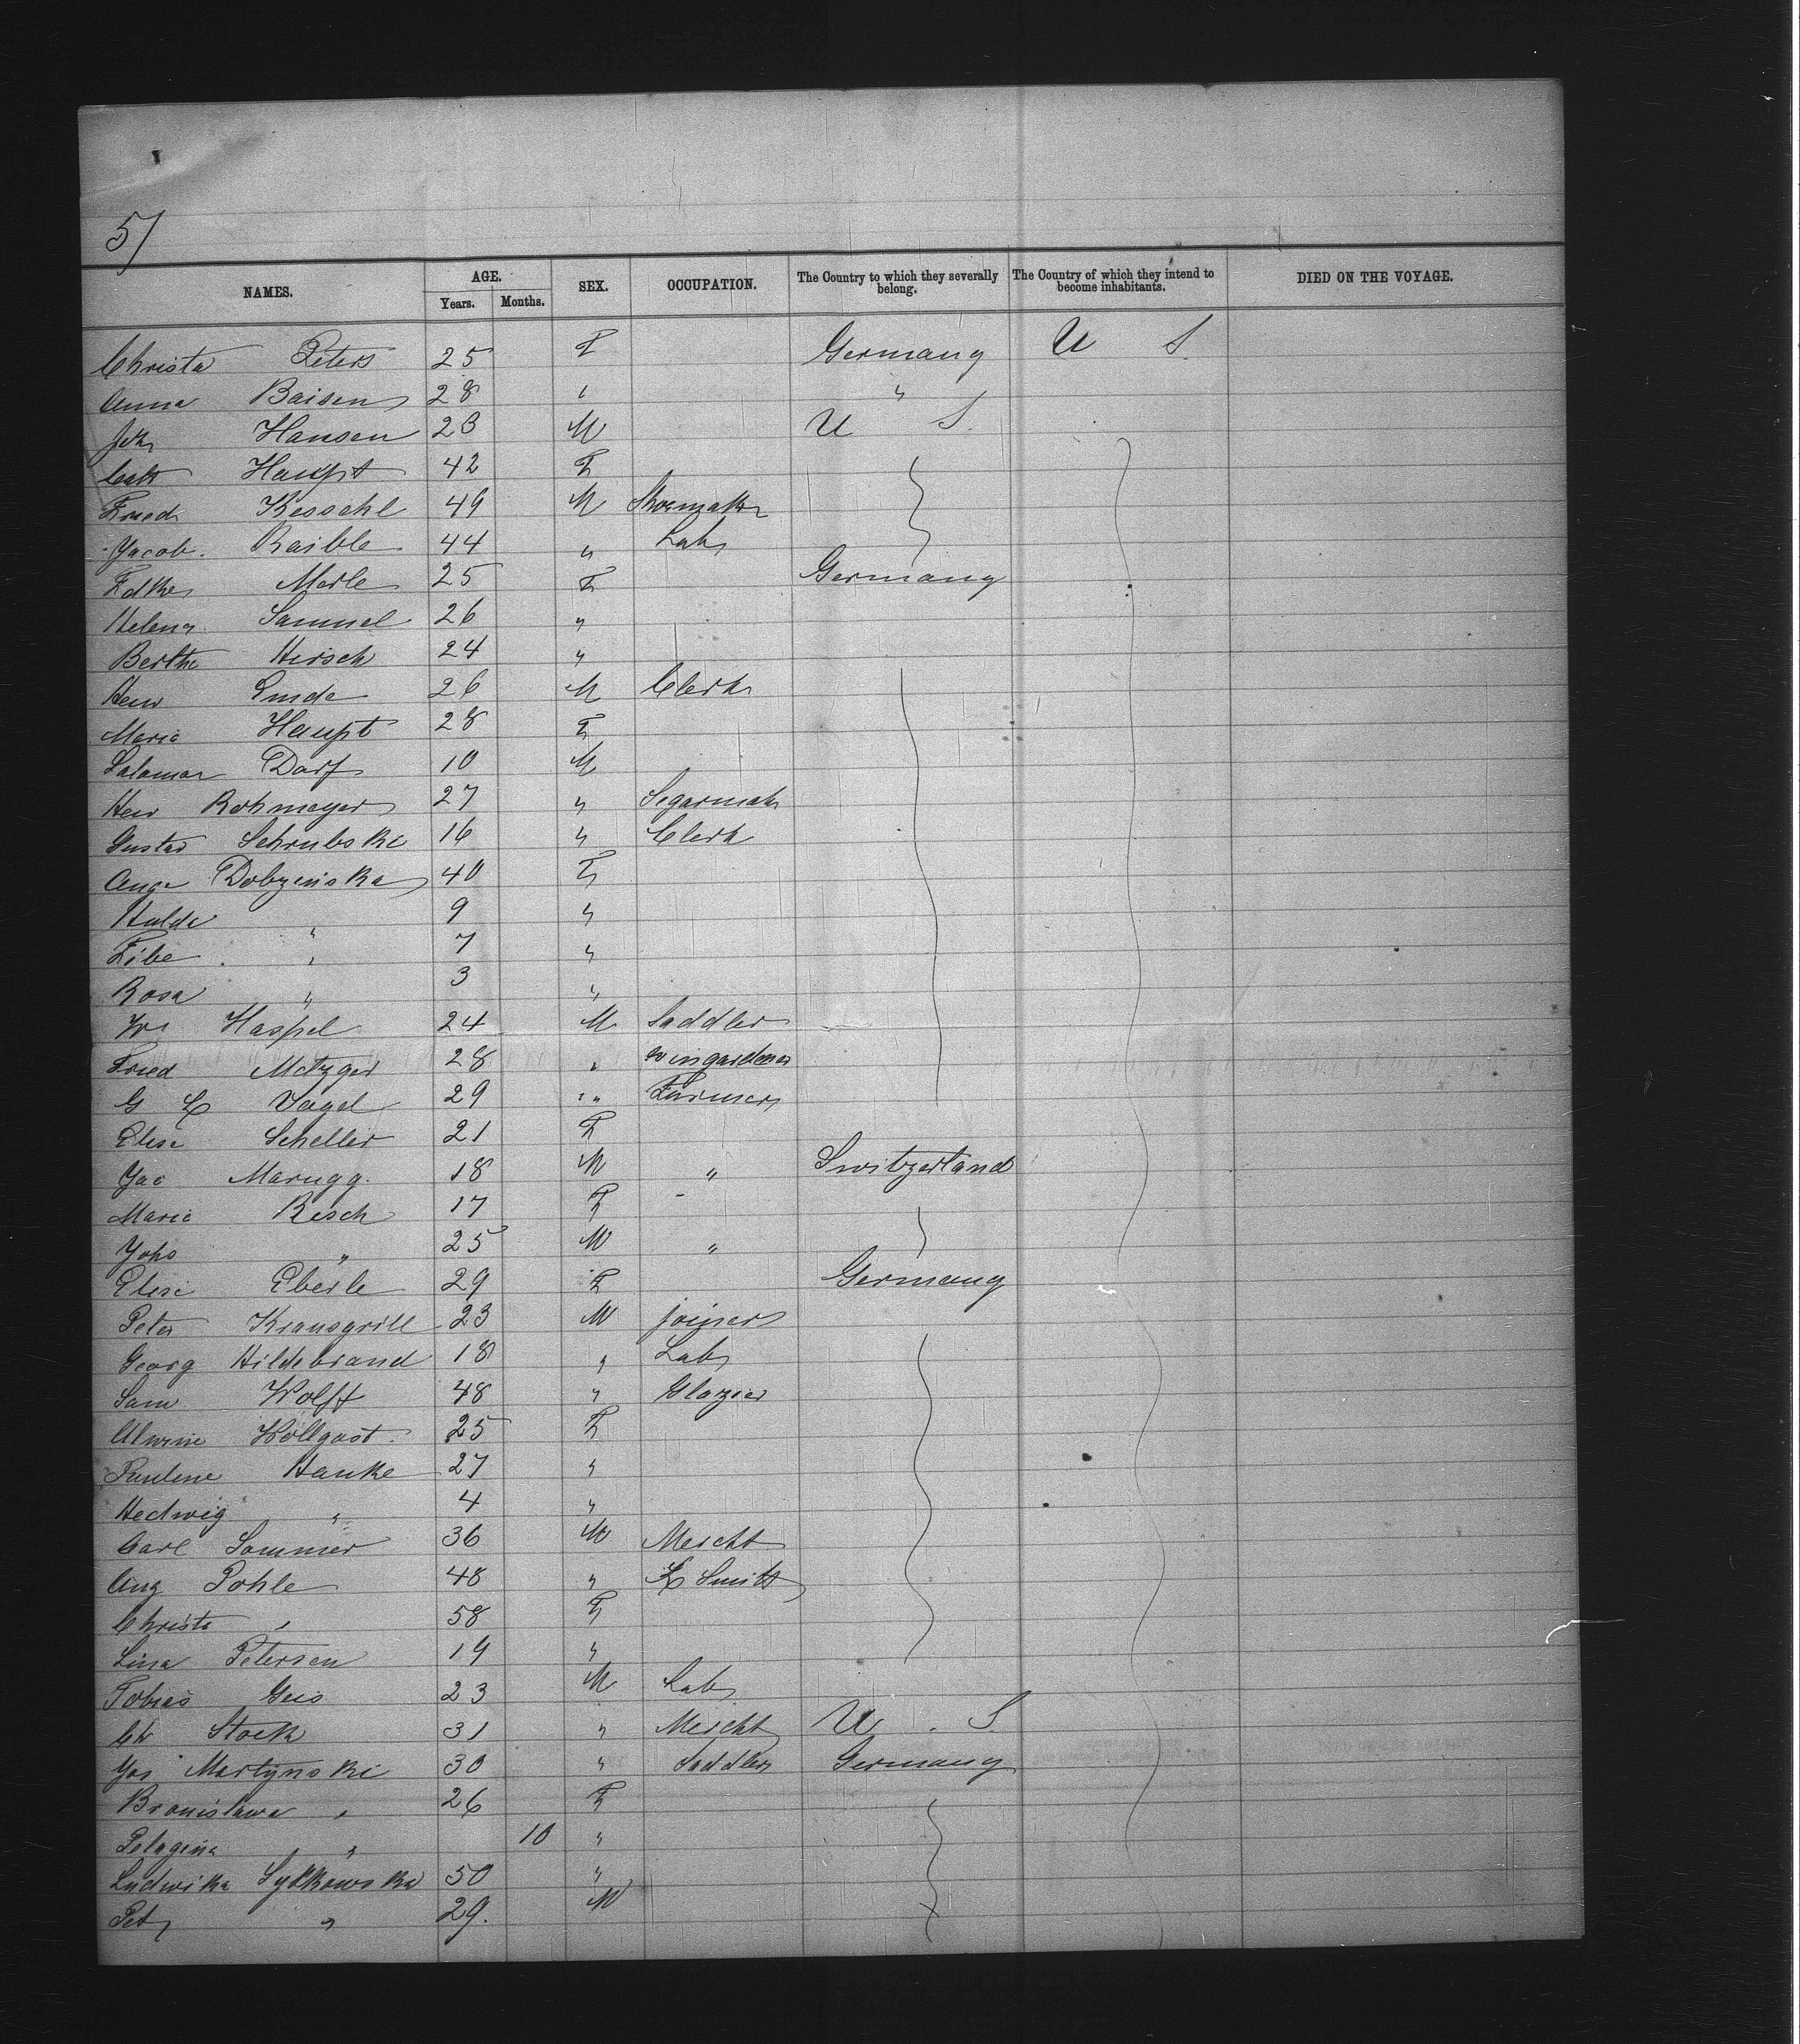 5/
NAMES. AGE. Years. Months. SEX. OCCUPATION. The Country to which they severally belong. The Country of which they intend to become inhabitants. DIED ON THE VOYAGE.
Christa Peters 25 F Germany U S.
Anna Baisen 28 " "
Joh Hansen 23 M U S.
Cath Haupt 42 F
Fried Kesschl 49 M Shoemaker
Yacob Raible 44 " Lab
Merle 25 F Germany
Helena Samuel 26 "
Bertha Hirsch 24 "
Henr Linde 26 M Clerk
Maria Haupt 28 F
Salamon Darf 10 M
Henr Rohmeyer 27 " Segarmak
Gustav Schrubski 16 " Clerk
Dobzenska 40 F
Hulda " 9 "
Fibe " 7 "
Rosa " 3 "
Haspel 24 M Saddler
Fried Metzger 28 " wingardener
G Vogel 29 " Farmer
Elise Scheller 21 F
Yac Marugg. 18 M " Switzerland
Maria Risch 17 F
Yohs " 25 M "
Elise Eberle 29 F Germany
Peter Krausgrill 23 M joiner
Georg Hildebrand 18 " Lab
Sam Wolff 48 " Glazier
Alwine Hollgast 25 F
Pauline Hanke 27 "
Hedwig " 4 "
Carl Sommer 36 M Mercht
Aug Pohle 48 " Smith
Christa " 58 F
Lina Petersen 19 "
Tobias Geis 23 M Lab
Ch Stock 31 " Mercht U. S.
Yos Martynski 30 " Saddler Germany
Bronislawa " 26 F
Pelagina " 10 "
Ludwika Sylkowska 50 "
Pet " 29. M